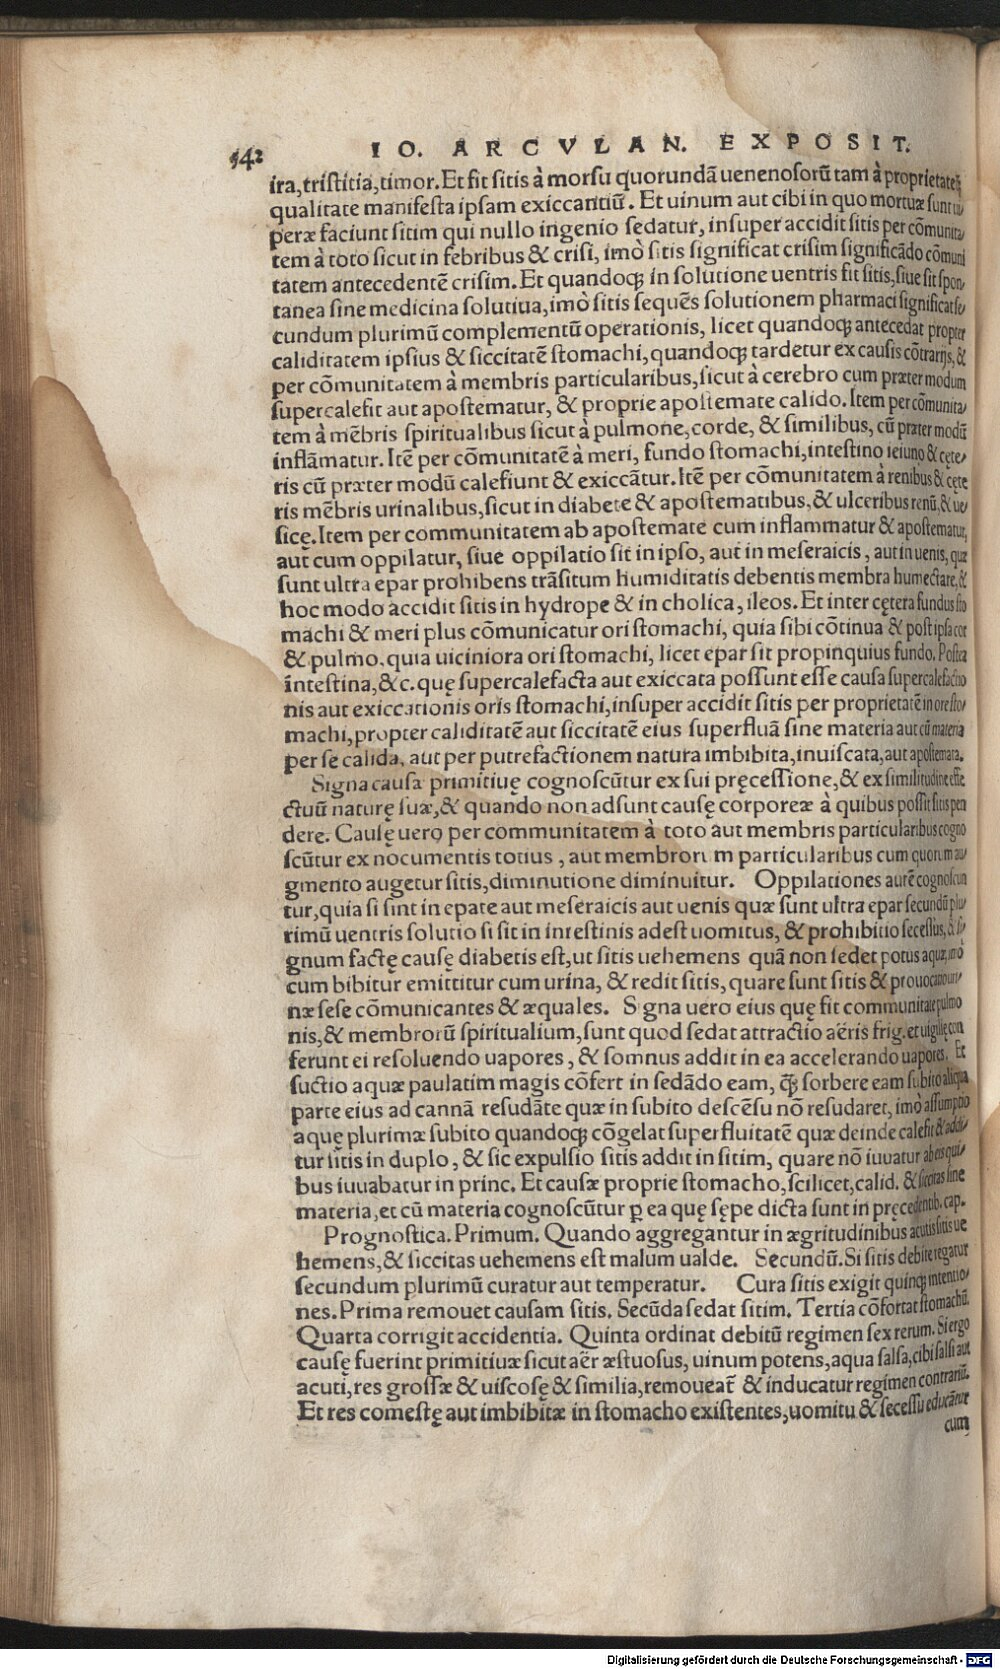 542 IO. ARCVLAN. EXPOSIT.
ira, tristitia, timor. Et fit sitis à morsu quorundã uenenosorũ tam à proprietate q̃
qualitate manifesta ipsam exiccantiũ. Et uinum aut cibi in quo mortuæ sunt ui/
peræ faciunt sitim qui nullo ingenio sedatur, insuper accidit sitis per cõmunita/
tem à toto sicut in febribus & crisi, imò sitis significat crisim significãdo cõmuni
tatem antecedentẽ crisim. Et quandoqꝫ in solutione uentris fit sitis, siue sit spon/
tanea sine medicina solutiua, imò sitis sequẽs solutionem pharmaci significat se/
cundum plurimũ complementũ operationis, licet quandoqꝫ antecedat propter
caliditatem ipsius & siccitatẽ stomachi, quandoqꝫ tardetur ex causis cõtrarijs, &
per cõmunitatem à membris particularibus, sicut à cerebro cum præter modum
supercalefit aut apostematur, & proprie apostemate calido. Item per cõmunita/
tem à mẽbris spiritualibus sicut à pulmone, corde, & similibus, cũ præter modũ
inflãmatur. Itẽ per cõmunitatẽ à meri, fundo stomachi, intestino ieiuno & cęte/
ris cũ præter modũ calefiunt & exiccãtur. Itẽ per cõmunitatem à renibus & cęte
ris mẽbris urinalibus, sicut in diabete & apostematibus, & ulceribus renũ, & ue/
sicę. Item per communitatem ab apostemate cum inflammatur & apostematur,
aut cum oppilatur, siue oppilatio sit in ipso, aut in meseraicis, aut in uenis, quæ
sunt ultra epar prohibens trãsitum humiditatis debentis membra humectare, &
hoc modo accidit sitis in hydrope & in cholica, ileos. Et inter cętera fundus sto
machi & meri plus cõmunicatur ori stomachi, quia sibi cõtinua & post ipsa cor
& pulmo. quia uiciniora ori stomachi, licet epar sit propinquius fundo. Postea
ĩntestina, &c. quę supercalefacta aut exiccata possunt esse causa supercalefactio
nis aut exiccationis oris stomachi, insuper accidit sitis per proprietatẽ in ore sto/
machi, propter caliditatẽ aut siccitatẽ eius superfluã sine materia aut cũ materia
per se calida, aut per putrefactionem natura imbibita, inuiscata, aut apostemata.
Signa causa primitiuę cognoscũtur ex sui pręcessione, & ex similitudine effe
ctuũ naturę suæ, & quando non adsunt causę corporeæ à quibus possit sitis pen
dere. Causę uero per communitatem à toto aut membris particularibus cogno
scũtur ex nocumentis totius, aut membrorum particularibus cum quorum au/
gmento augetur sitis, diminutione diminuitur. Oppilationes autẽ cognoscun
tur, quia si sint in epate aut meseraicis aut uenis quæ sunt ultra epar secundũ plu/
rimũ uentris solutio si sit in intestinis adest uomitus, & prohibitio secessus, & si/
gnum factę causę diabetis est, ut sitis uehemens quã non sedet potus aquæ, imò
cum bibitur emittitur cum urina, & redit sitis, quare sunt sitis & prouocatio uri/
næ sese cõmunicantes & æquales. Signa uero eius quę fit communitate pulmo
nis, & membrorũ spiritualium, sunt quod sedat attractio aëris frig. et uigilię con
ferunt ei resoluendo uapores, & somnus addit in ea accelerando uapores. Et
suctio aquæ paulatim magis cõfert in sedãdo eam, q̃ꝫ sorbere eam subito aliqua
parte eius ad cannã resudãte quæ in subito descẽsu nõ resudaret, imò assumptio
aquę plurimæ subito quandoqꝫ cõgelat superfluitatẽ quæ deinde calefit & addi/
tur sitis in duplo, & sic expulsio sitis addit in sitim, quare nõ iuuatur ab eis qui/
bus iuuabatur in princ. Et causæ proprie stomacho, scilicet, calid. & siccitas sine
materia, et cũ materia cognoscũtur ꝑ ea quę sępe dicta sunt in pręcedentib. cap.
Prognostica. Primum. Quando aggregantur in ægritudinibus acutis sitis ue
hemens, & siccitas uehemens est malum ualde. Secundũ. Si sitis debite regatur
secundum plurimũ curatur aut temperatur. Cura sitis exigit quinqꝫ intentio/
nes. Prima remouet causam sitis. Secũda sedat sitim. Tertia cõfortat stomachũ.
Quarta corrigit accidentia. Quinta ordinat debitũ regimen sex rerum. Si ergo
causę fuerint primitiuæ sicut aër æstuosus, uinum potens, aqua salsa, cibi salsi aut
acuti, res grossæ & uiscosę & similia, remoueat̃ & inducatur regimen contrariũ.
Et res comestę aut imbibitæ in stomacho existentes, uomitu & secessu educãtur
cum
Digitalisierung gefördert durch die Deutsche Forschungsgemeinschaft - DFG